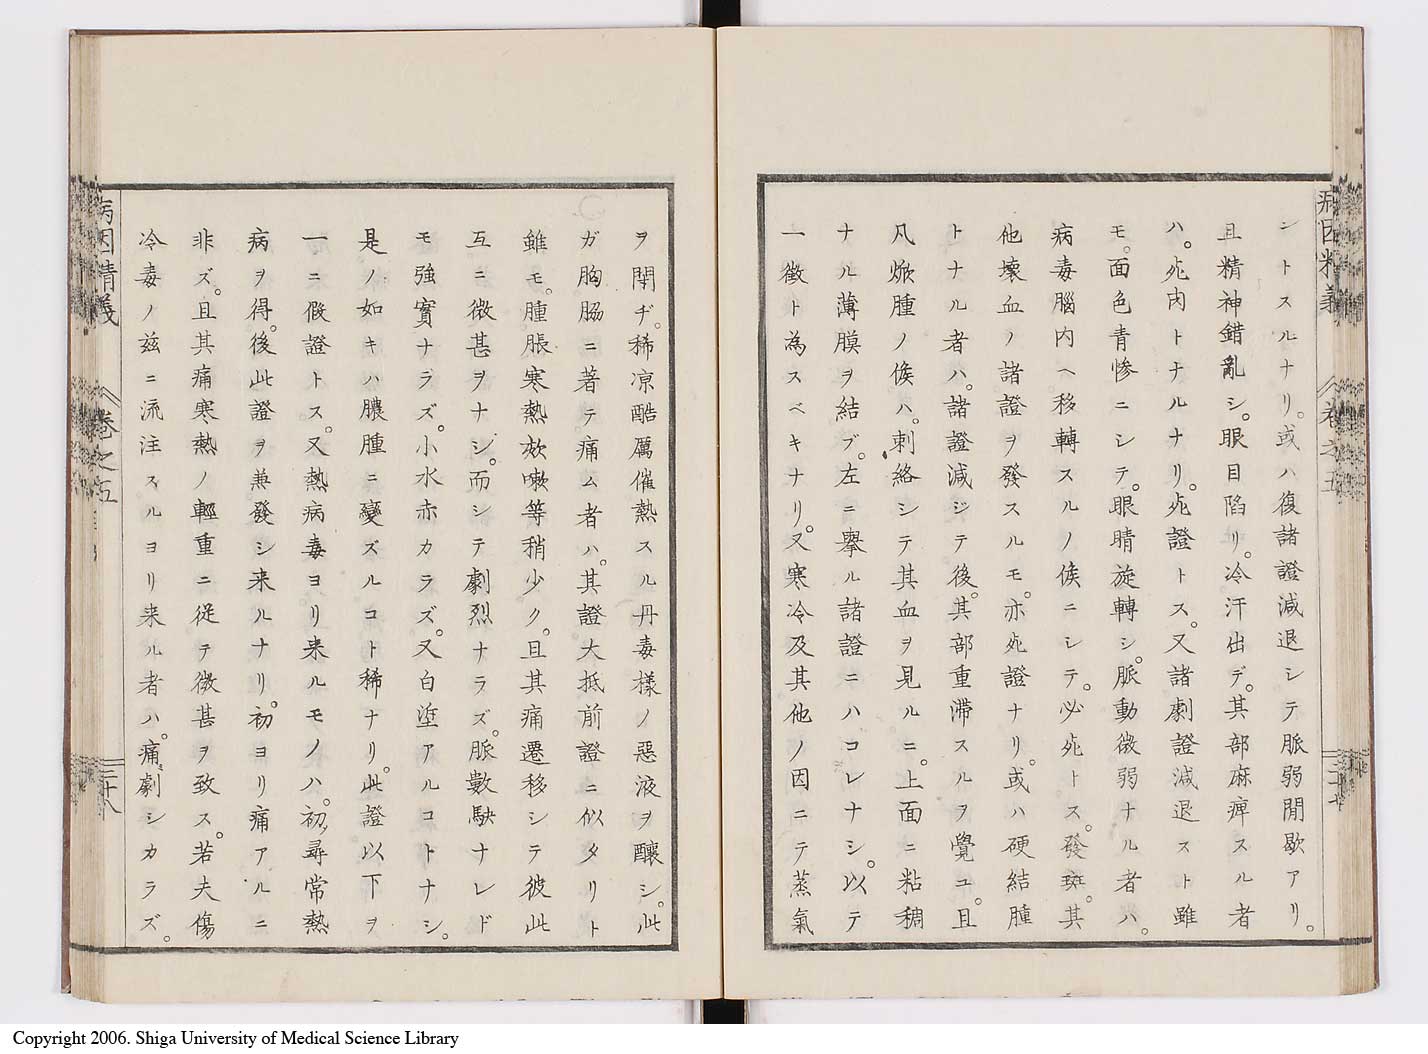 病因精義 卷之五 三十七
シトスルナリ。或ハ復諸證減退シテ脈弱間歇アリ。
且精神錯亂シ。眼目陷リ。冷汗出デ。其部麻痺スル者
ハ。死肉トナルナリ。死證トス。又諸劇證減退スト雖
モ。面色青慘ニシテ。眼睛旋轉シ。脈動微弱ナル者ハ。
病毒腦內ヘ移轉スルノ候ニシテ。必死トス。發斑其
他壞血ノ諸證ヲ發スルモ。亦死證ナリ。或ハ硬結腫
トナル者ハ。諸證減ジテ後。其部重滯スルヲ覺ユ。且
凡焮腫ノ候ハ。刺絡シテ其血ヲ見ルニ。上面ニ粘稠
ナル薄膜ヲ結ブ。左ニ擧ル諸證ニハコレナシ。以テ
一徵ト為スベキナリ。又寒冷及其他ノ因ニテ蒸氣
ヲ閉ヂ。稀凉酷厲催熱スル丹毒樣ノ惡液ヲ釀シ。此
ガ胸脇ニ著テ痛ム者ハ。其證大抵前證ニ似タリト
雖モ。腫脹寒熱欬嗽等稍少ク。且其痛遷移シテ彼此
互ニ微甚ヲナシ。而シテ劇烈ナラズ。脈數駃ナレド
モ強實ナラズ。小水赤カラズ。又白垽アルコトナシ。
是ノ如キハ膿腫ニ變ズルコト稀ナリ。此證以下ヲ
一ニ假證トス。又熱病毒ヨリ来ルモノハ。初メ尋常熱
病ヲ得。後此證ヲ兼發シ来ルナリ。初ヨリ痛アルニ
非ズ。且其痛寒熱ノ輕重ニ從テ微甚ヲ致ス。若夫傷
冷毒ノ茲ニ流注スルヨリ来ル者ハ。痛劇シカラズ。
病因精義 卷之五 三十八
Copyright 2006. Shiga University of Medical Science Library